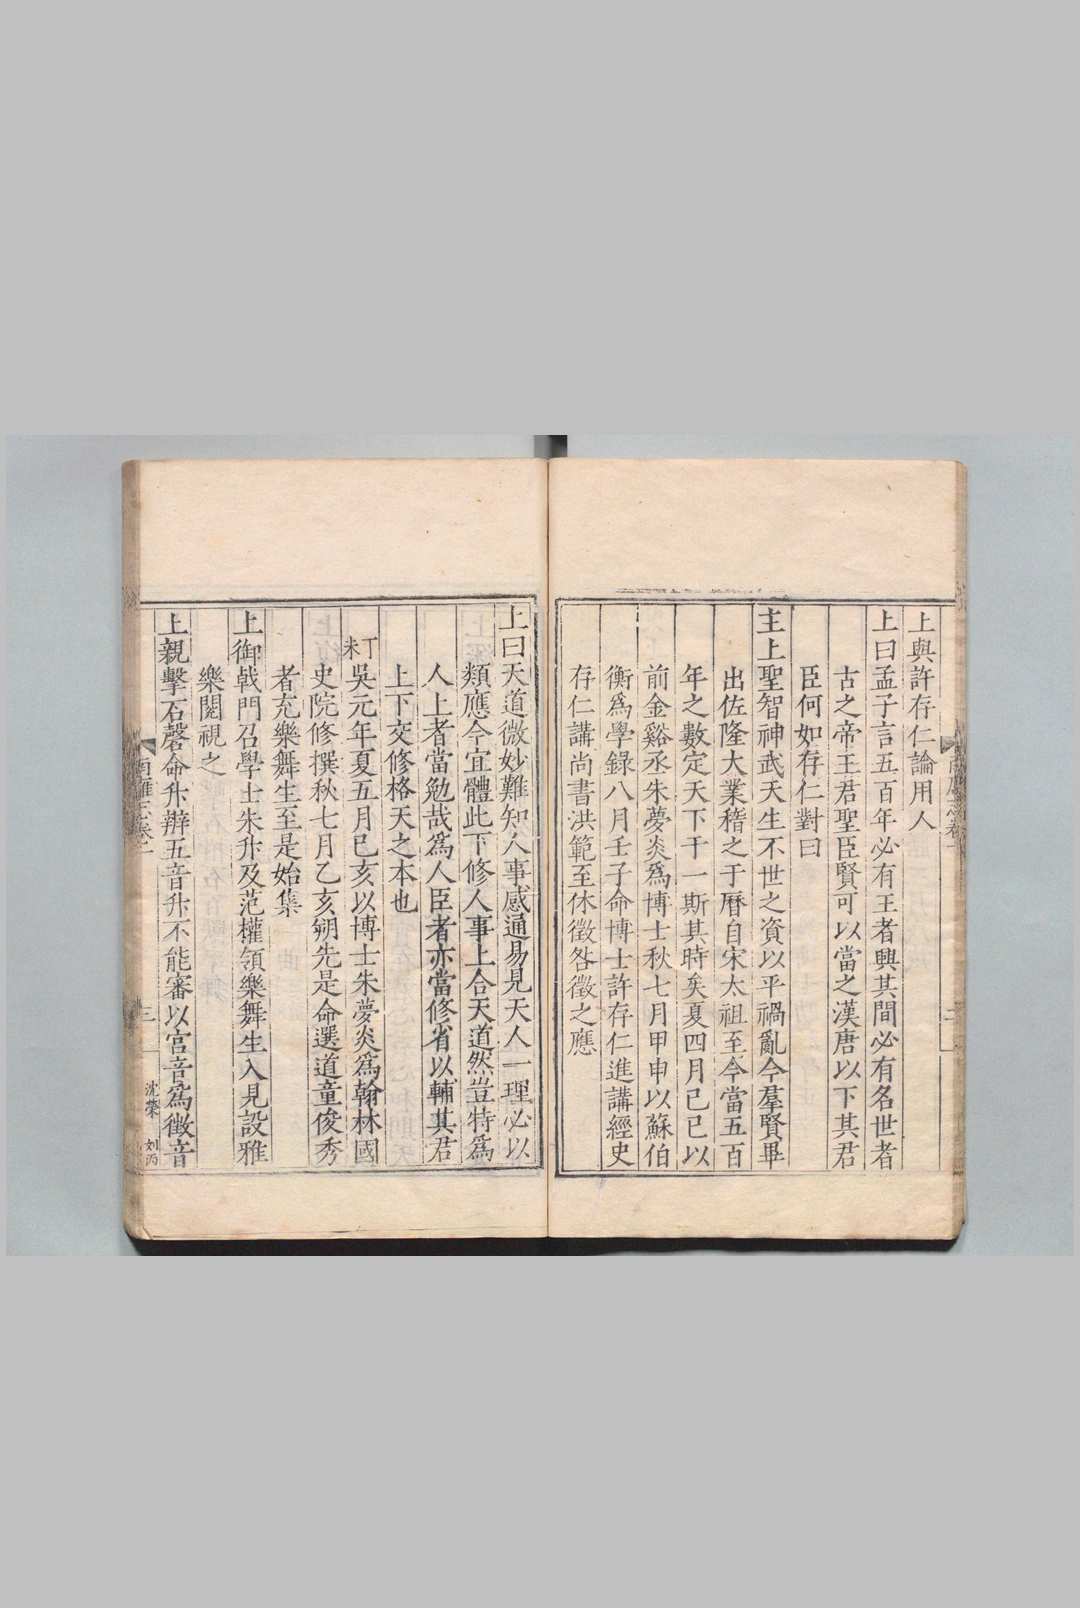 上與許存仁論用人
上曰孟子言五百年必有王者興其間必有名世者
古之帝王君聖臣賢可以當之漢唐以下其君
臣何如存仁對曰
主上聖智神武天生不世之資以平禍亂今羣賢畢
出佐隆大業稽之于曆自宋太祖至今當五百
年之數定天下于一斯其時矣夏四月己巳以
前金谿丞朱夢炎爲博士秋七月甲申以蘇伯
衡爲學錄八月壬子命博士許存仁進講經史
存仁講尚書洪範至休徵咎徵之應
上曰天道微妙難知人事感通易見天人一理必以
類應今宜體此下修人事上合天道然豈特爲
人上者當勉哉爲人臣者亦當修省以輔其君
上下交修格天之本也
丁未吳元年夏五月己亥以博士朱夢炎爲翰林國
史院修撰秋七月乙亥朔先是命選道童俊秀
者充樂舞生至是始集
上御戟門召學士朱升及范權領樂舞生入見設雅
樂閱視之
上親擊石磬命升辯五音升不能審以宮音爲徵音
南雍志卷一
三
沈榮
刘丙